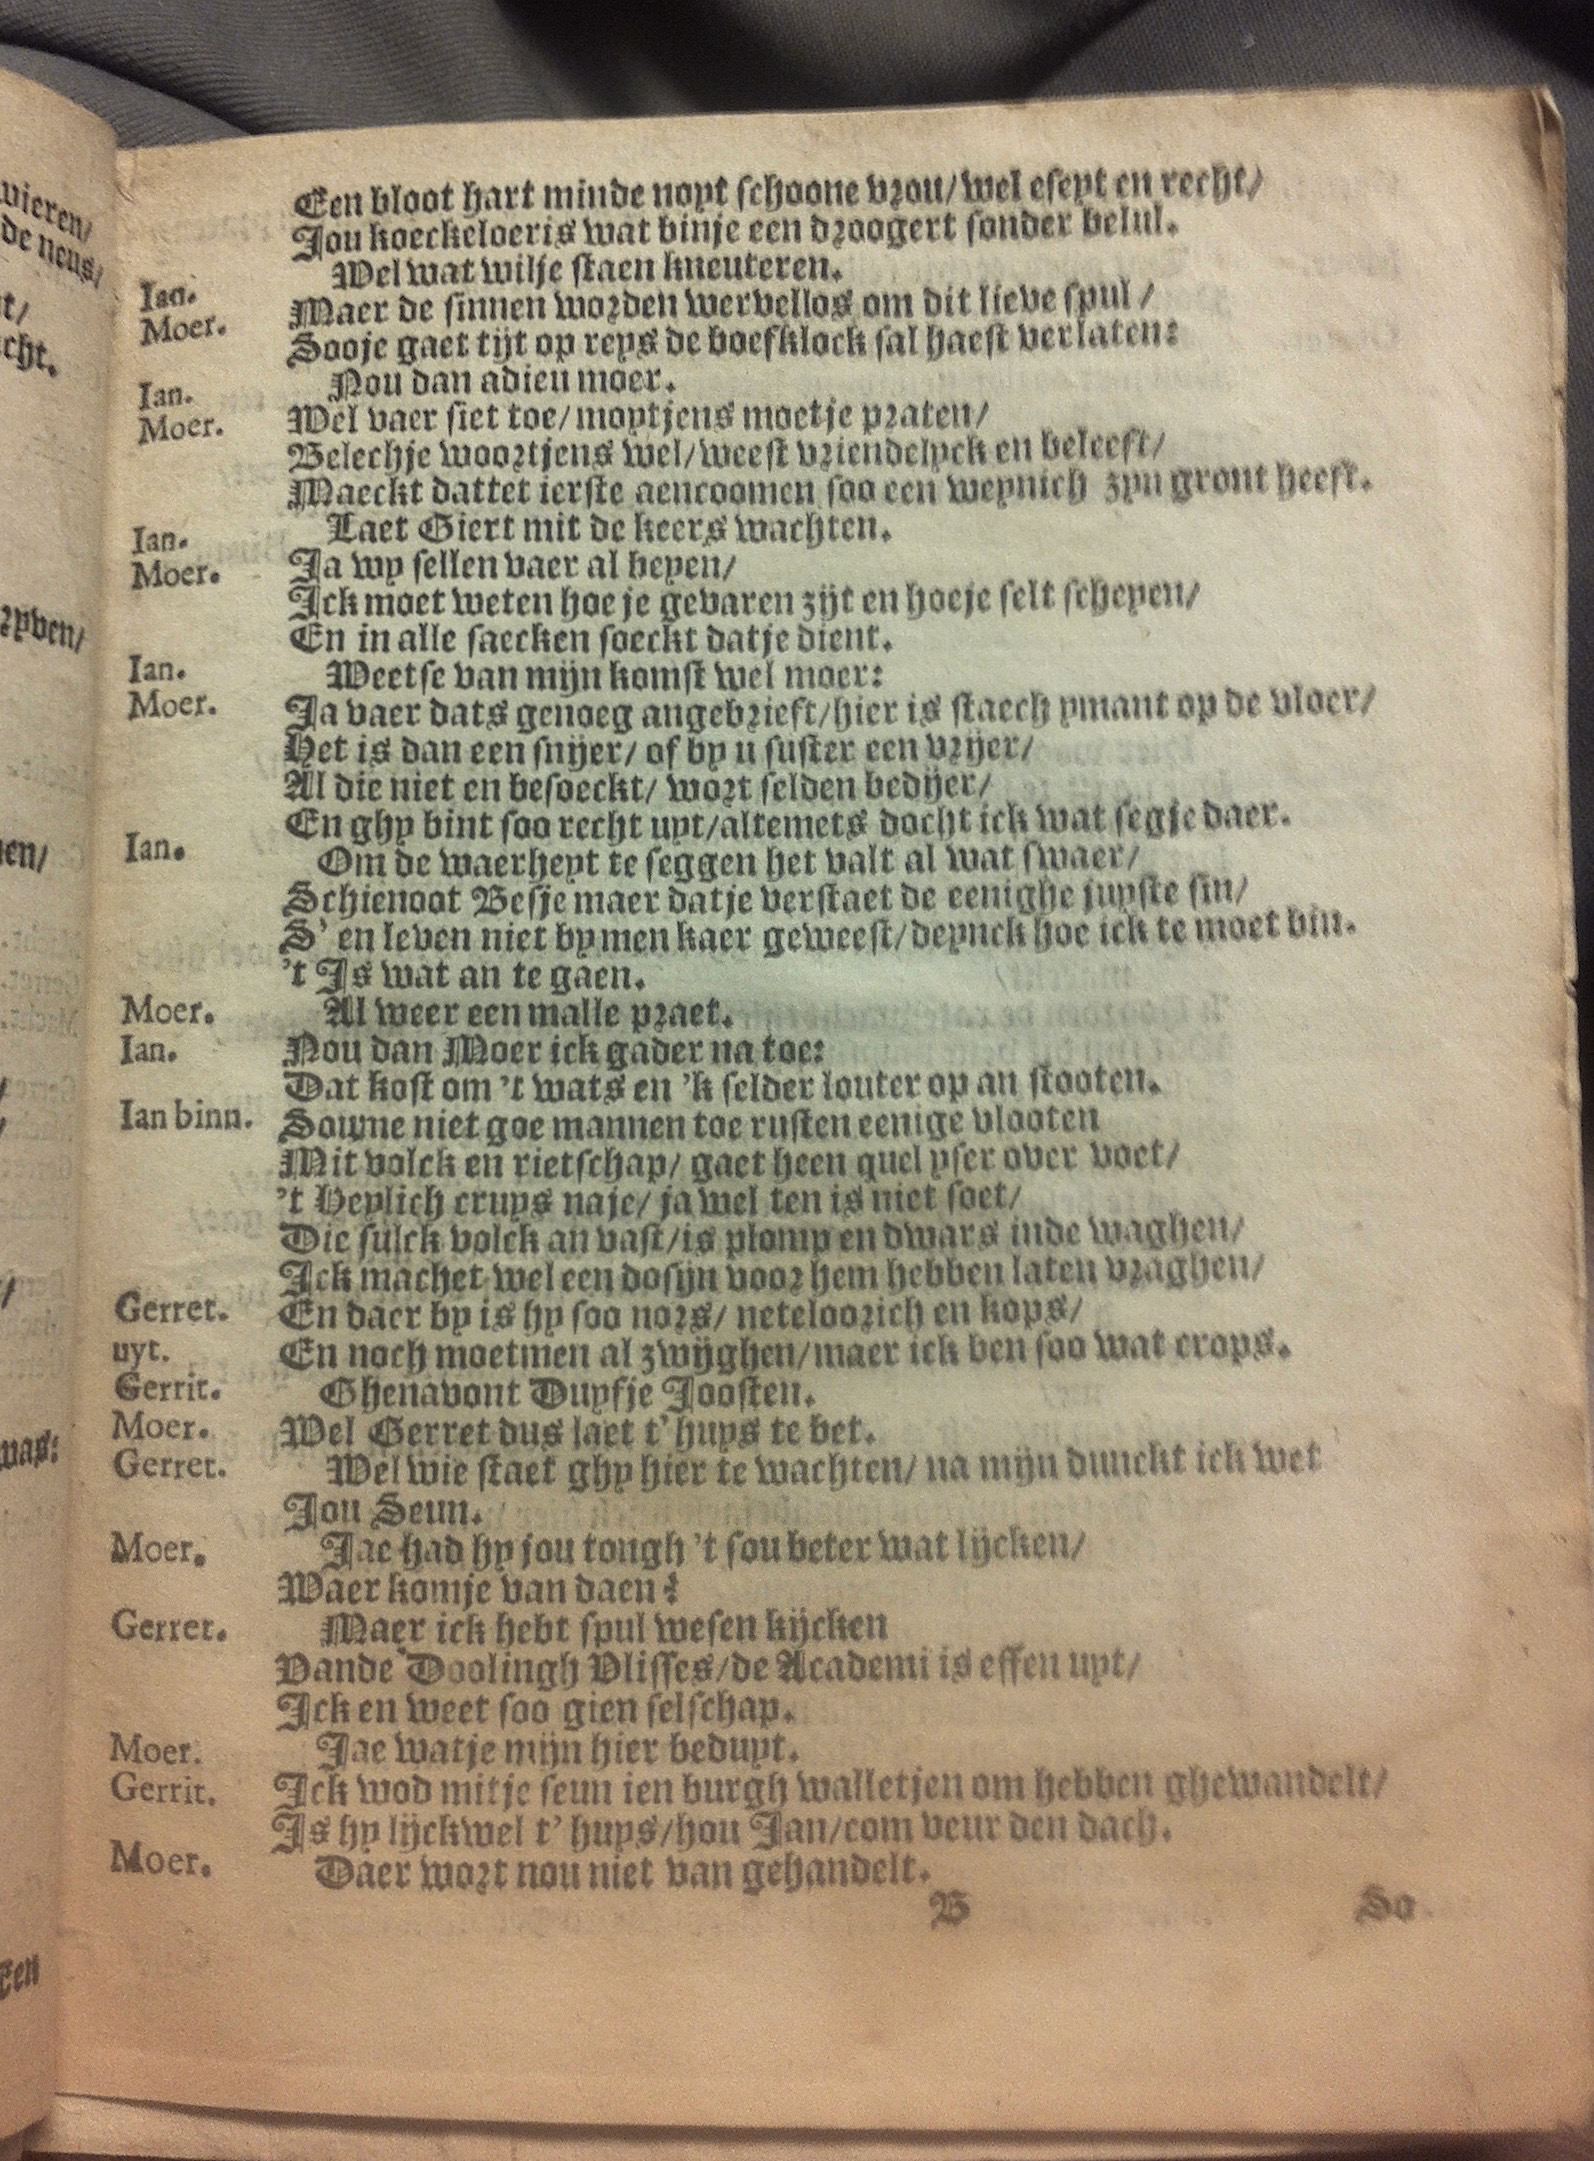 vieren/
de neus/
t/
cht.
rpven/
en/
was:
ten
Een bloot hart minde noyt schoone vrou/ wel eseyt en recht/
Jou koeckeloeris wat binje een droogert sonder belul.
Ian. Wel wat wilje staen kneuteren.
Moer. Maer de sinnen worden wervellos om dit lieve spul /
Sooje gaet tijt op reys de boefklock sal haest verlaten:
Ian. Nou dan adieu moer.
Moer. Wel vaer siet toe/ moytjens moetje praten/
Belechje woortjens wel/ weest vriendelyck en beleeft/
Maeckt dattet ierste aencoomen soo een weynich zyn gront heeft.
Ian. Laet Giert mit de keers wachten.
Moer. Ja wy sellen vaer al beyen/
Ick moet weten hoe je gevaren zijt en hoeje selt scheyen/
En in alle saecken soeckt datje dient.
Ian. Weetse van mijn komst wel moer:
Moer. Ja vaer dats genoeg angebrieft/ hier is staech ymant op de vloer/
Het is dan een snijer/ of by u suster een vrijer/
Al die niet en besoeckt/ wort selden bedijer/
En ghy bint soo recht uyt/ altemets docht ick wat segje daer.
Ian. Om de waerheyt te seggen het valt al wat swaer/
Schienoot Besje maer datje verstaet de eenighe juyste sin/
S' en leven niet by men kaer geweest/ deynck hoe ick te moet bin.
't Is wat an te gaen.
Moer. Al weer een malle praet.
Ian. Nou dan Moer ick gader na toe:
Dat kost om 't wats en 'k selder louter op an stooten.
Ian binn. Souwne niet goe mannen toe rusten eenige vlooten
Mit volck en rietschap/ gaet heen quel yser over voet/
't Heylich cruys naje/ ja wel ten is niet soet/
Die sulck volck an vast/ is plomp en dwars inde waghen/
Ick machet wel een dosijn voor hem hebben laten vraghen/
Gerret. En daer by is hy soo nors/ neteloorich en kops/
uyt. En noch moetmen al zwijghen/ maer ick ben soo wat crops.
Gerrit. Ghenavont Duyfje Joosten.
Moer. Wel Gerret dus laet t' huys te bet.
Gerret. Wel wie staet ghy hier te wachten/ na mijn dunckt ick wet
Jou Seun.
Moer. Jae had hy jou tongh 't sou beter wat lijcken/
Waer komje van daen?
Gerret. Maer ick hebt spul wesen kijcken
Vande Doolingh Vlisses/ de Academi is effen uyt/
Ick en weet soo gien selschap.
Moer. Jae watje mijn hier beduyt.
Gerrit. Ick wod mitje seun ien burgh walletjen om hebben ghewandelt/
Is hy lijckwel t' huys/ hou Jan/ com veur den dach.
Moer. Daer wort nou niet van gehandelt.
B So